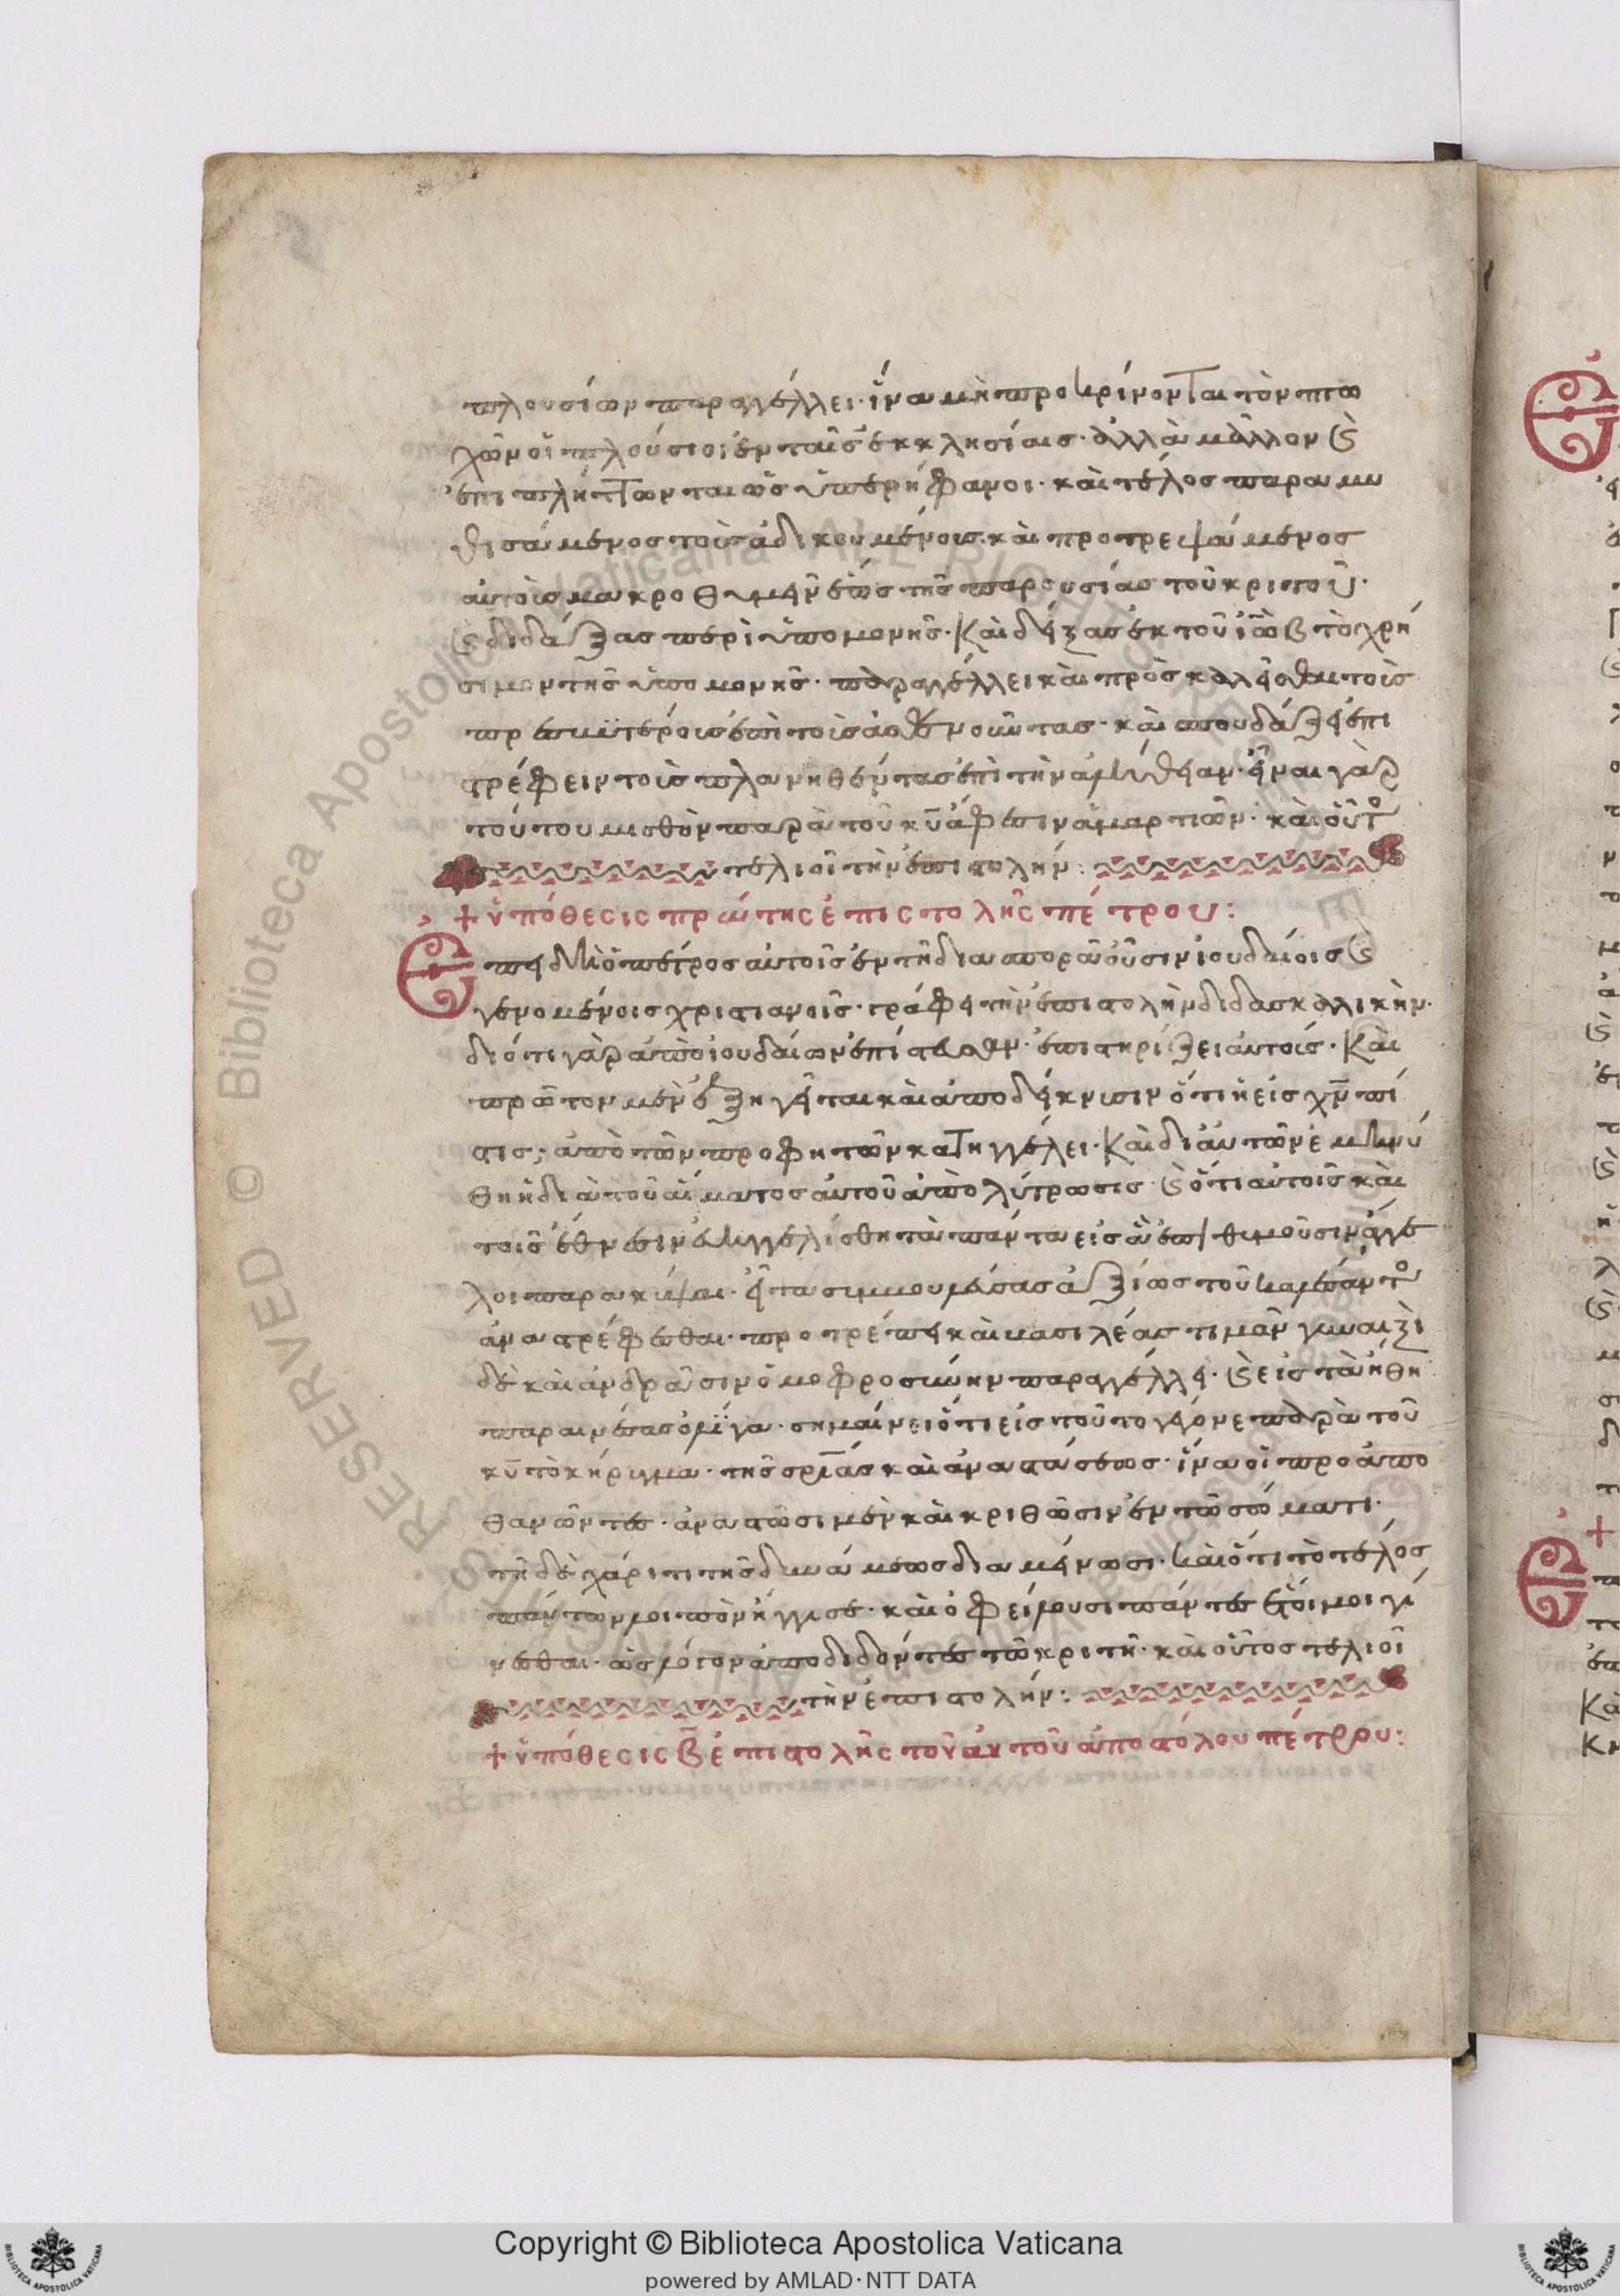 πλουσίων παραγγέλλει· ἵνα μὴ προκρίνονται τὸν πτω
χῶν οἱ πλούσιοι ἐν ταῖς ἐκκλησίαις· ἀλλὰ μᾶλλον ϗ
ἐπιπλήττωνται ὡς ὑπερήφανοι· καὶ τέλος παραμυ
θισάμενος τοὺς ἀδικουμένους· καὶ προτρεψάμενος
αὐτοὺς μακροθυμεῖν ἕως τῆς παρουσίας τοῦ κριτοῦ·
ϗ διδάξας περὶ ὑπομονῆς· καὶ δείξας ἐκ τοῦ ἰὼβ τὸ χρή
σιμον τῆς ὑπομονῆς· παραγγέλλει καὶ πρὸσκαλεῖσθαι τοὺς
πρεσβυτέρους ἐπὶ τοὺς ἀσθενοῦντας· καὶ σπουδάζει ἐπι
στρέφειν τοὺς πλανηθέντας ἐπὶ τὴν ἀλήθειαν· εἶναι γὰρ
τούτου μισθὸν παρὰ τοῦ κυ ἄφεσιν ἁμαρτιῶν· καὶ οὕτ
τελιοῖ τὴν ἐπιστολήν:
+ ὑπόθεσις πρώτης ἐπιστολῆς πέτρου:
Ἐπειδὴ ὁ πέτρος αὐτοῖς ἐν τῆ διασπορᾶ οὖσιν ἰουδαίοις ϗ
γενομένοις χριστιανοῖς· γράφει τὴν ἐπιστολὴν διδασκαλικήν·
διότι γὰρ ἀπὸ ἰουδαίων ἐπίστευσαν· ἐπιστηρίζει αὐτούς· καὶ
πρῶτον μὲν ἐξηγεῖται καὶ ἀποδείκνυσιν ὅτι ἡ εἰς χν πί
στις· ἀπὸ τῶν προφητῶν κατηγγέλει· καὶ δι αὐτῶν ἐμηνύ
θη ἡ διὰ τοῦ αἵματος αὐτοῦ ἀπολύτρωσις· ϗ ὅτι αὐτοῖς καὶ
τοῖς ἔθνεσιν εὐηγγελίσθη τὰ πάντα εἰς ἃ ἐπιθυμοῦσιν ἄγγε
λοι παρακύψαι· εἶτα ἀξίως τοῦ καλέσαντ
ἀναστρέφεσθαι· προτρέπει καὶ βασιλέας τιμᾶν γυναιξὶ
δὲ καὶ ἀνδράσιν ὁμοφροσύνην παραγγέλλει· ϗ εἰς τὰ ἤθη
παραινέσας ὀλίγα· σημαίνει ὅτι εἰς τοῦτο γέγονε παρὰ τοῦ
κυ τὸ κήρυγμα· τῆς σρίας καὶ ἀναστάσεως· ἵνα οἱ προαπο
θανῶντες· ἀναστῶσι μὲν καὶ κριθῶσιν ἐν τῶ σώματι·
τῆ δὲ χάριτι τῆς δυνάμεως διαμείνωσι· καὶ ὅτι τὸ τέλος
πάντων λοιπὸν ἤγγισε· καὶ ὀφείλουσι πάντες ἕτοιμοι γί
νεσθαι· ὡς λόγον ἀποδιδόντες τῶ κριτῆ· καὶ οὕτος τελιοῖ
τὴν ἐπιστολήν:
+ ὑπόθεσις β ἐπιστολῆς τοῦ αὐτοῦ ἀποστόλου πέτρου:
Copyright © Biblioteca Apostolica Vaticana
powered by AMLAD·NTT DATA